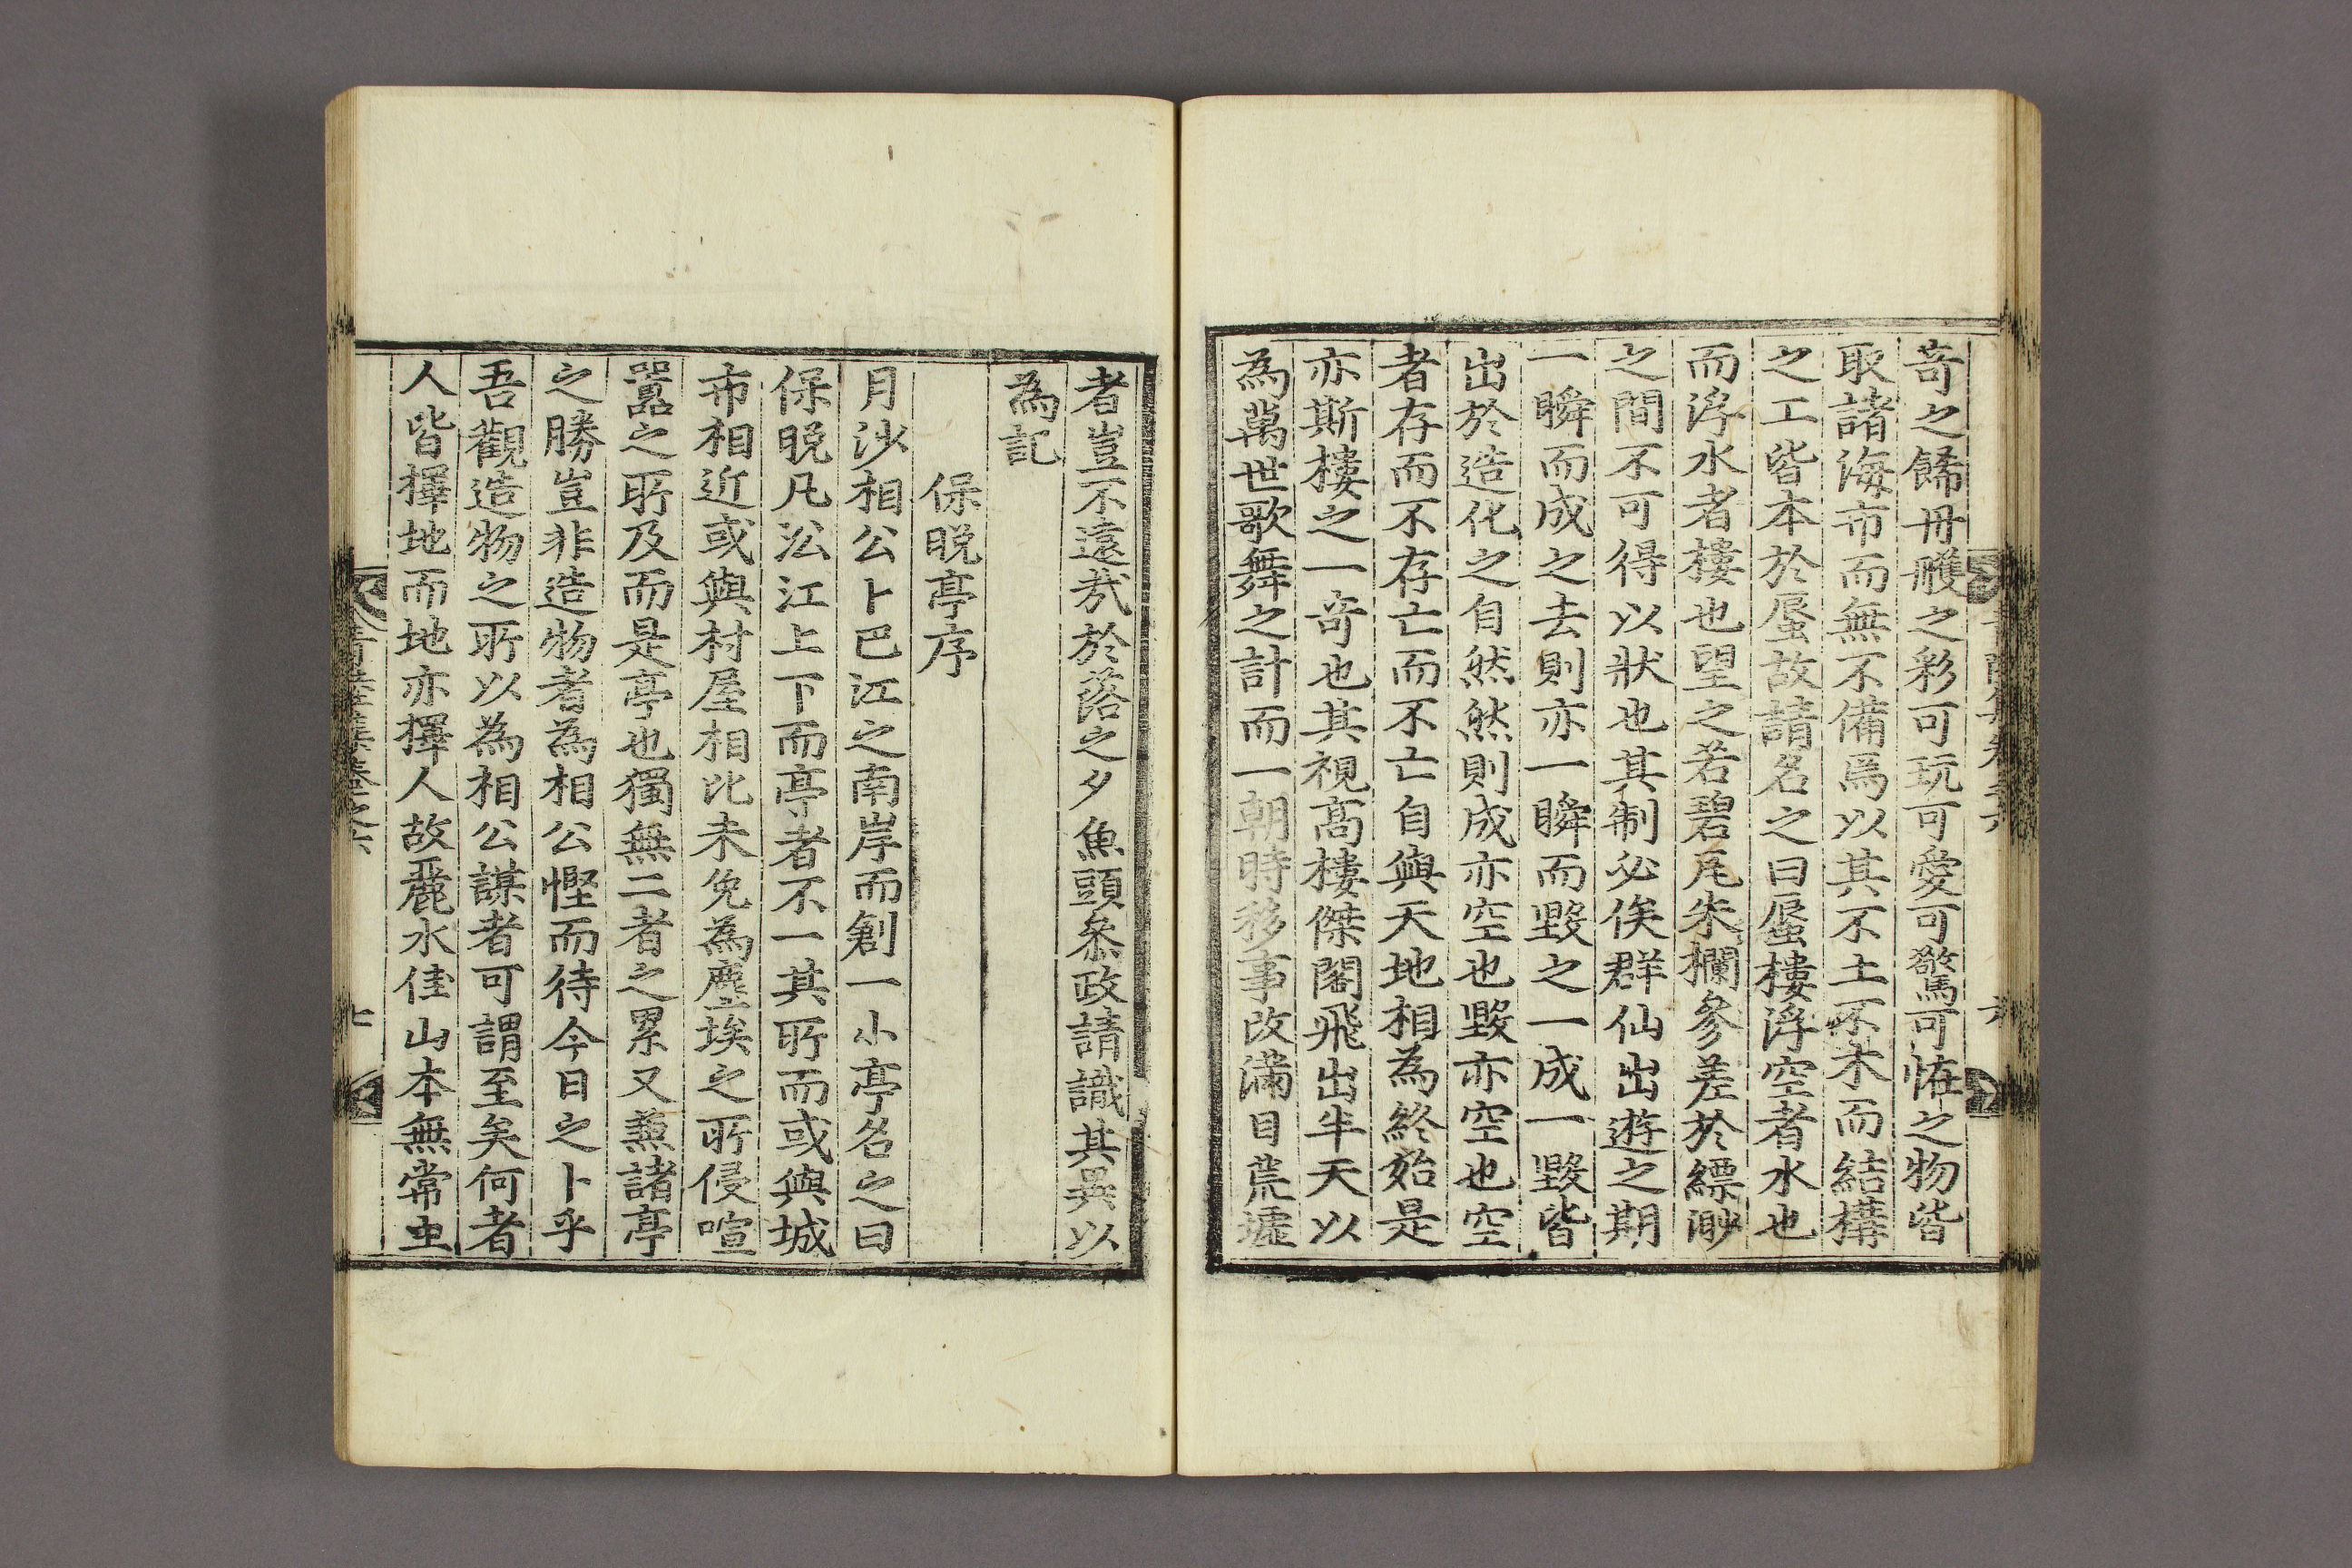 奇之餙丹雘之彩可玩可愛可驚可恠之物皆
取諸海市而無不備焉以其不土不木而結構
之工皆本於蜃故請名之曰蜃樓浮空者水也
而浮水者樓也望之若碧瓦朱欄參差於縹渺
之間不可得以狀也其制必俟群仙出遊之期
一瞬而成之去則亦一瞬而毀之一成一毀皆
出於造化之自然然則成亦空也毀亦空也空
者存而不存亡而不亡自與天地相為終始是
亦斯樓之一奇也其視高樓傑閣飛出半天以
為萬世歌舞之計而一朝時移事改滿目荒墟
者豈不遠哉於落之夕魚頭叅政請識其異以
為記
保晩亭序
月沙相公卜巴江之南岸而創一小亭名之曰
保晩凡㳂江上下而亭者不一其所而或與城
市相近或與村屋相比未免為塵埃之所侵喧
囂之所及而是亭也獨無二者之累又兼諸亭
之勝豈非造物者為相公慳而待今日之卜乎
吾觀造物之所以為相公謀者可謂至矣何者
人皆擇地而地亦擇人故麗水佳山本無常主
青陸集卷之六
七